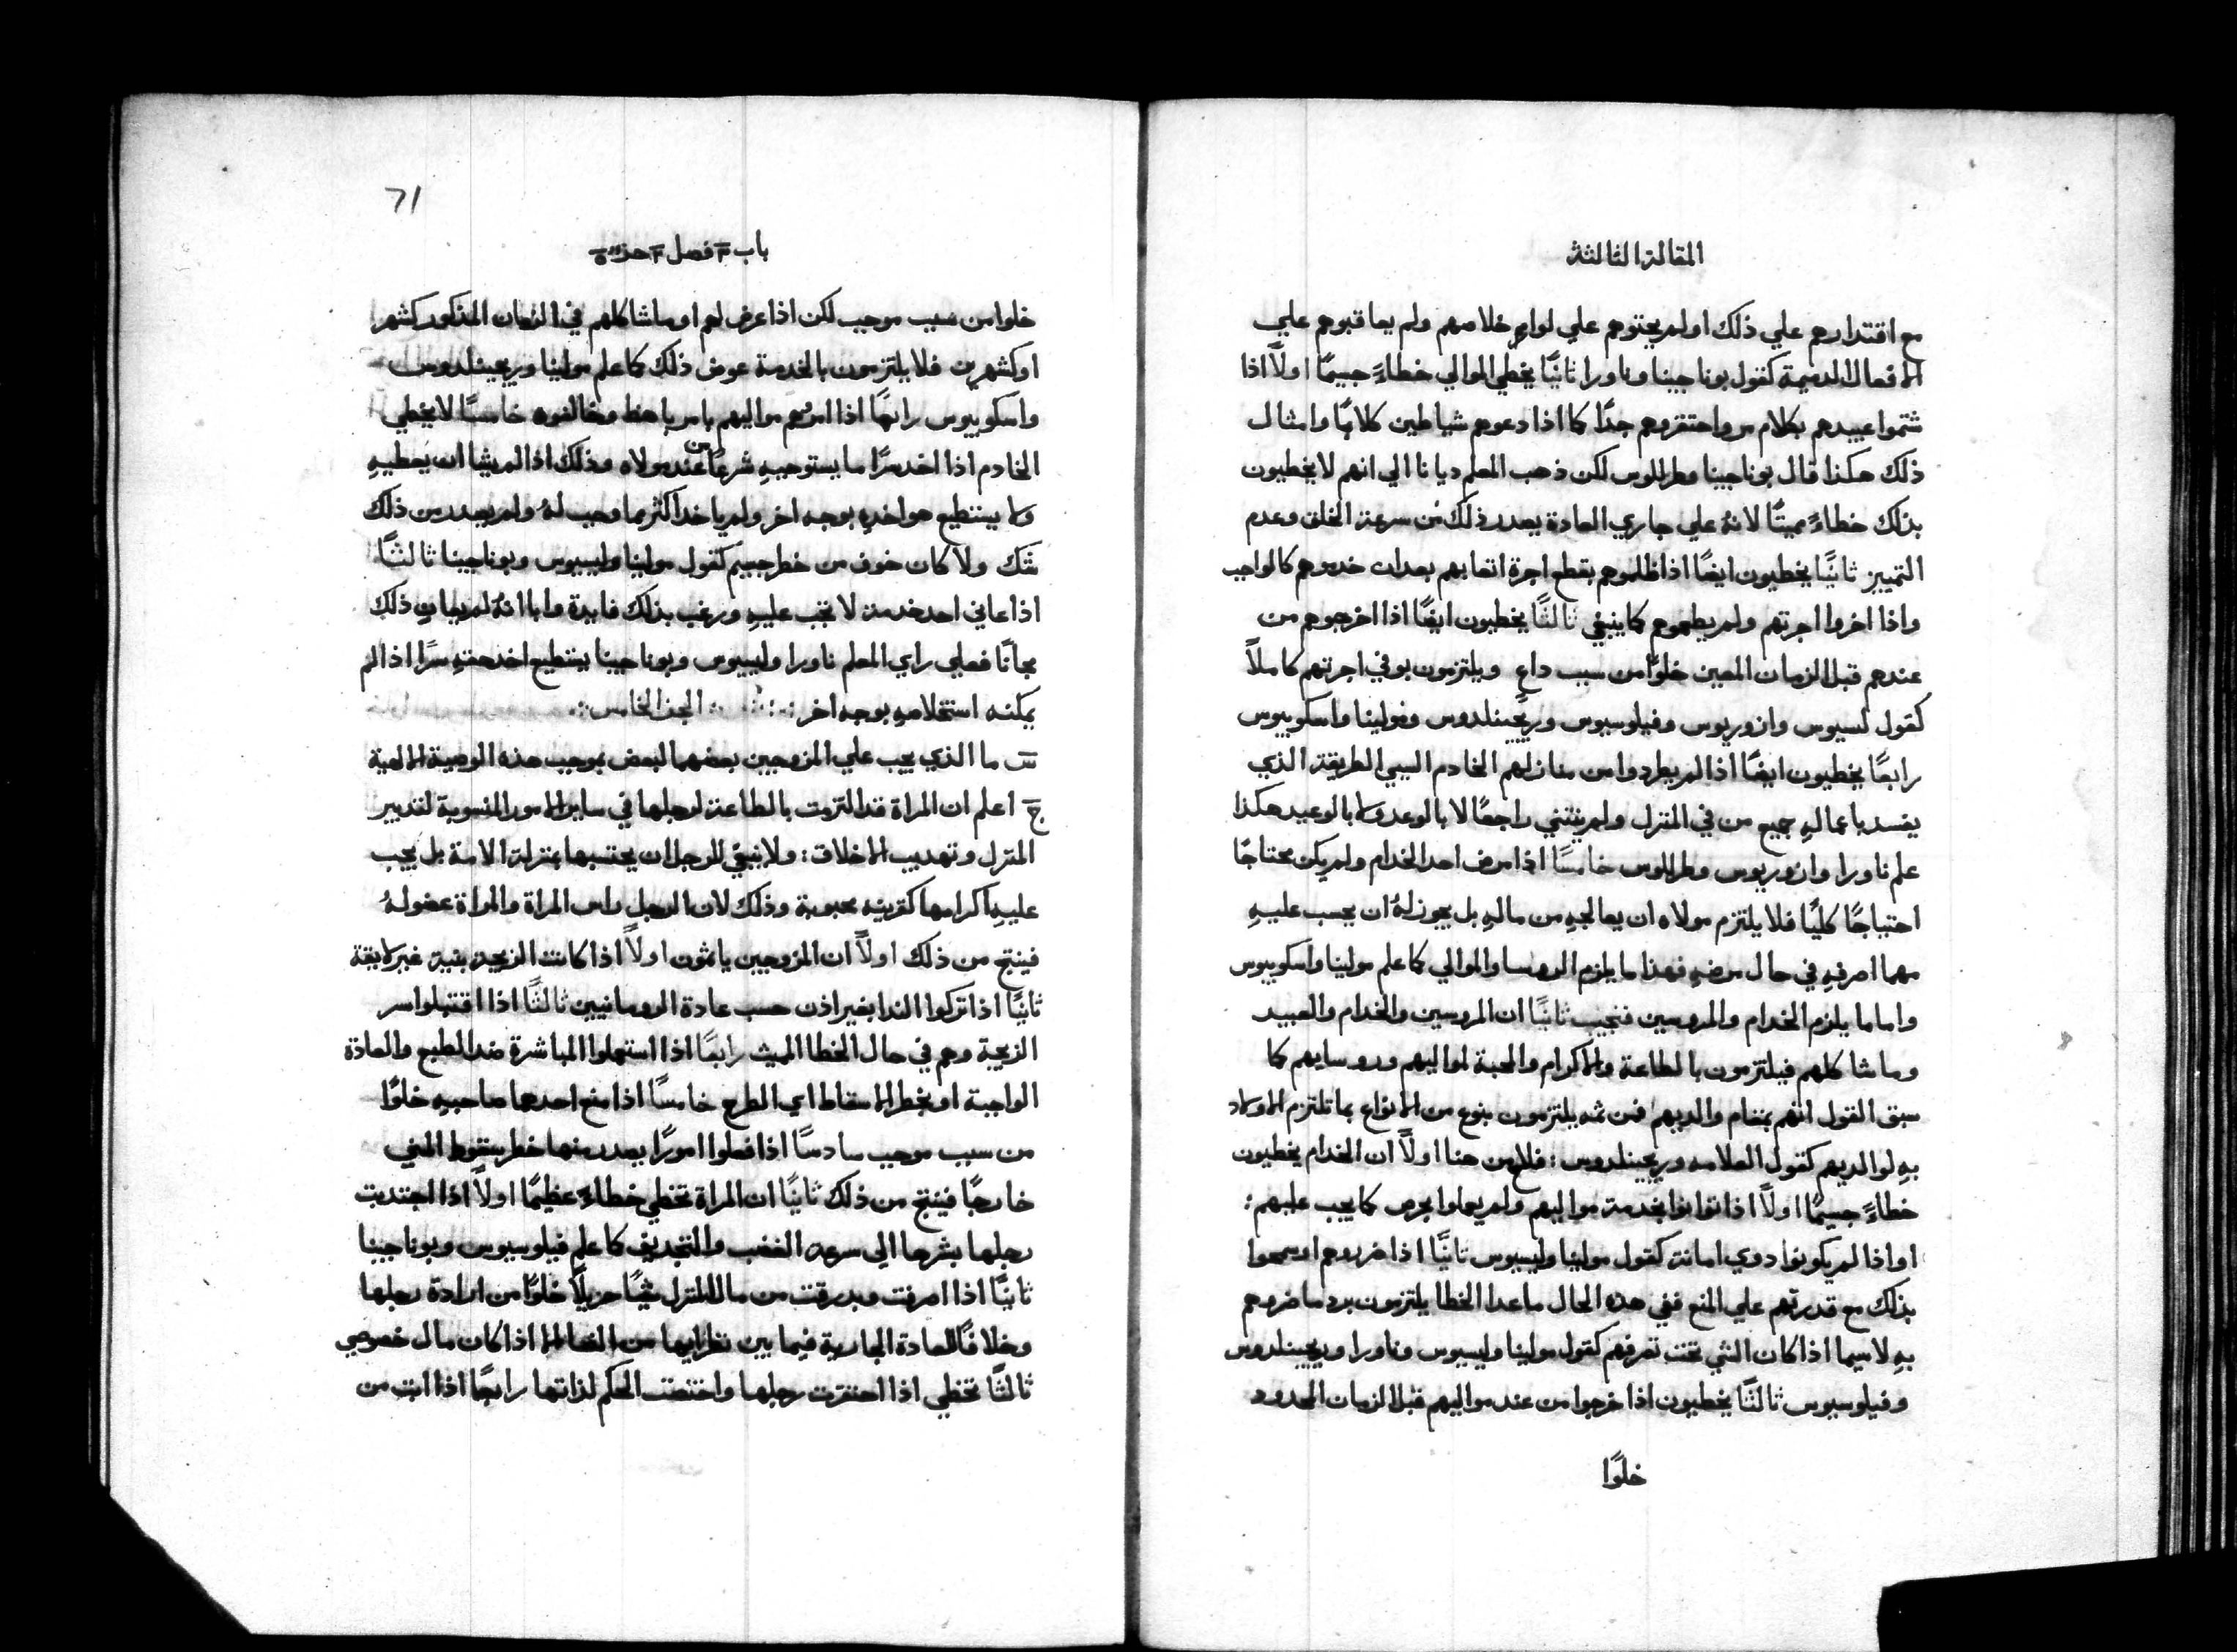 المقالة الثالثة
مع اقتدارهم علي ذلك او لم يحتوهم علي لوازم خلاصهم ولم يعاقبوهم علي
الافعال الدميمة كقول بوناجينا وناورا ثانيًا يخطي الموالي خطاءً جسيمًا اولًا اذا
شتموا عبيدهم بكلام مر واحتقروهم جدًا كما اذا دعوهم شياطين كلابًا وامثال
ذلك هكذا قال بوناجينا وطرللوس لكن ذهب المعلم ديانا الي انهم لا يخطيون
بذلك خطاءً مميتًا لانهُ علي جاري العادة يصدر ذلك من سرعة الخلق وعدم
التمييز ثانيًا يخطيون ايضًا اذا ظلموهم بقطع اجرة اتعابهم بعد ان خدموهم كالواجب
واذا اخروا اجرتهم ولم يطعموهم كما ينبغي ثالثًا يخطيون ايضًا اذا اخرجوهم من
عندهم قبل الزمان المعين خلوًا من سبب داعٍ ويلتزمون بوفي اجرتهم كاملًا
كقول لسيوس وازوريوس وفيلوسيوس وريجينلدوس ومولينا واسكوبيوس
رابعًا يخطيون ايضًا اذا لم يطردوا من منازلهم الخادم السيي الطريقة الذي
يفسد باعمالهِ جميع من في المنزل ولم ينثني راجعًا لا بالوعد ولا بالوعيد هكذا
علم ناورا وازوريوس وطرللوس خامسًا اذا مرض احد الخدام ولم يكن محتاجًا
احتياجًا كليًا فلا يلتزم مولاه ان يعالجهِ من مالهِ بل يجوز لهُ ان يحسب عليهِ
مهما اصرفهِ في حال مرضهِ فهذا ما يلزم الروسا والموالي كما علم مولينا واسكوبيوس
واما ما يلزم الخدام والمروسين فنجيب ثانيًا ان المروسين والخدام والعبيد
وما شاكلهم فيلتزمون بالطاعة والاكرام والمحبة لمواليهم وروسايهم كما
سبق القول انهم بمقام والديهم فمن ثمه يلتزمون بنوع من الانواع بما تلتزم الاولاد
بهِ لوالديهم كقول العلامه وريجينلدوس : فلاح من هنا اولًا ان الخدام يخطيون
خطاءً جسيمًا اولًا اذا توانوا بخدمة مواليهم ولم يعملوا بحرص كما يجب عليهم :
او اذا لم يكونوا دوي امانة كقول مولينا وليسيوس ثانيًا اذا ضروهم او سمحوا
بذلك مع قدرتهم علي المنع ففي هذه الحال ما عدا الخطا يلتزمون برد ما ضروهم
بهِ لاسيما اذا كان الشي تحت تصرفهم كقول مولينا وليسيوس وناورا وريجينلدوس
وفيلوسيوس ثالثًا يخطيون اذا خرجوا من عند مواليهم قبل الزمان المحدود
خلوًا
71
باب ٣ فصل ٣ جز ٥
خلوا من سبب موجب لكن اذا عرض لهم او ما شاكلهم في الزمان المذكور كشهر
او كشهرين فلا يلتزمون بالخدمة عوض ذلك كما علم مولينا وريجينلدوس
واسكوبيوس رابعًا اذا امرهم مواليهم بامر باهظ وخالفوه خامسًا لا يخطي
الخادم اذا اخد سرًا ما يستوجبهِ شرعًا من عند مولاه وذلك اذا لم يشا ان يعطيهِ
ولا يستطيع هو اخدهِ بوجه اخر ولم ياخد اكثر مما وجب لهُ ولم يصدر من ذلك
شك ولا كان خوف من خطر جسيم كقول مولينا وليسيوس وبوناجينا ثالثًا
اذا عاني احد خدمة لا تجب عليهِ ورغب بذلك فايدة وابا انهُ لم يعانِ ذلك
مجانًا فعلي راي المعلم ناورا وليسيوس وبوناجينا يستطيع اخد حقهِ سرًا اذا لم
يمكنه استخلاصهِ بوجه اخر : الجز الخامس :
س ما الذي يجب علي المزوجين بعضهما لبعض بموجب هذه الوصية الالهية
ج اعلم ان المراة قد التزمت بالطاعة لرجلها في ساير الامور المنسوبة لتدبير
المنزل وتهديب الاخلاق : ولا ينبغي للرجل ان يحتسبها بمنزلة الامة بل يجب
عليهِ اكرامها كقرينه محبوبة وذلك لان الرجل راس المراة والمراة عضو لهُ
فينتج من ذلك اولًا ان المزوجين ياثمون اولًا اذا كانت الزيجة بنية غير لايقة
ثانيًا اذا تركوا الندا بغير اذن حسب عادة الرومانيين ثالثًا اذا اقتبلوا سر
الزيجة وهم في حال الخطا المميت رابعًا اذا استعملوا المباشرة ضد الطبع والعادة
الواجبة او بخطر الاسقاط اي الطرح خامسًا اذا منع احدهما صاحبهِ خلوًا
من سبب موجب سادسًا اذا فعلوا امورًا يصدر منها خطر سقوط المني
خارجًا فينتج من ذلك ثانيًا ان المراة تخطي خطاءً عظيمًا اولًا اذا اجتدبت
رجلها بشرها الي سرعة الغضب والتجديف كما علم فيلوسيوس وبوناجينا
ثانيًا اذا اصرفت وسرقت من مال المنزل شيًا جزيلًا خلوًا من ارادة رجلها
وخلافًا للعادة الجارية فيما بين نظرايها من النسا الا اذا كان مال خصوصي
ثالثًا تخطي اذا احتقرت رجلها واختصت الحكم لذاتها رابعًا اذا ابت من